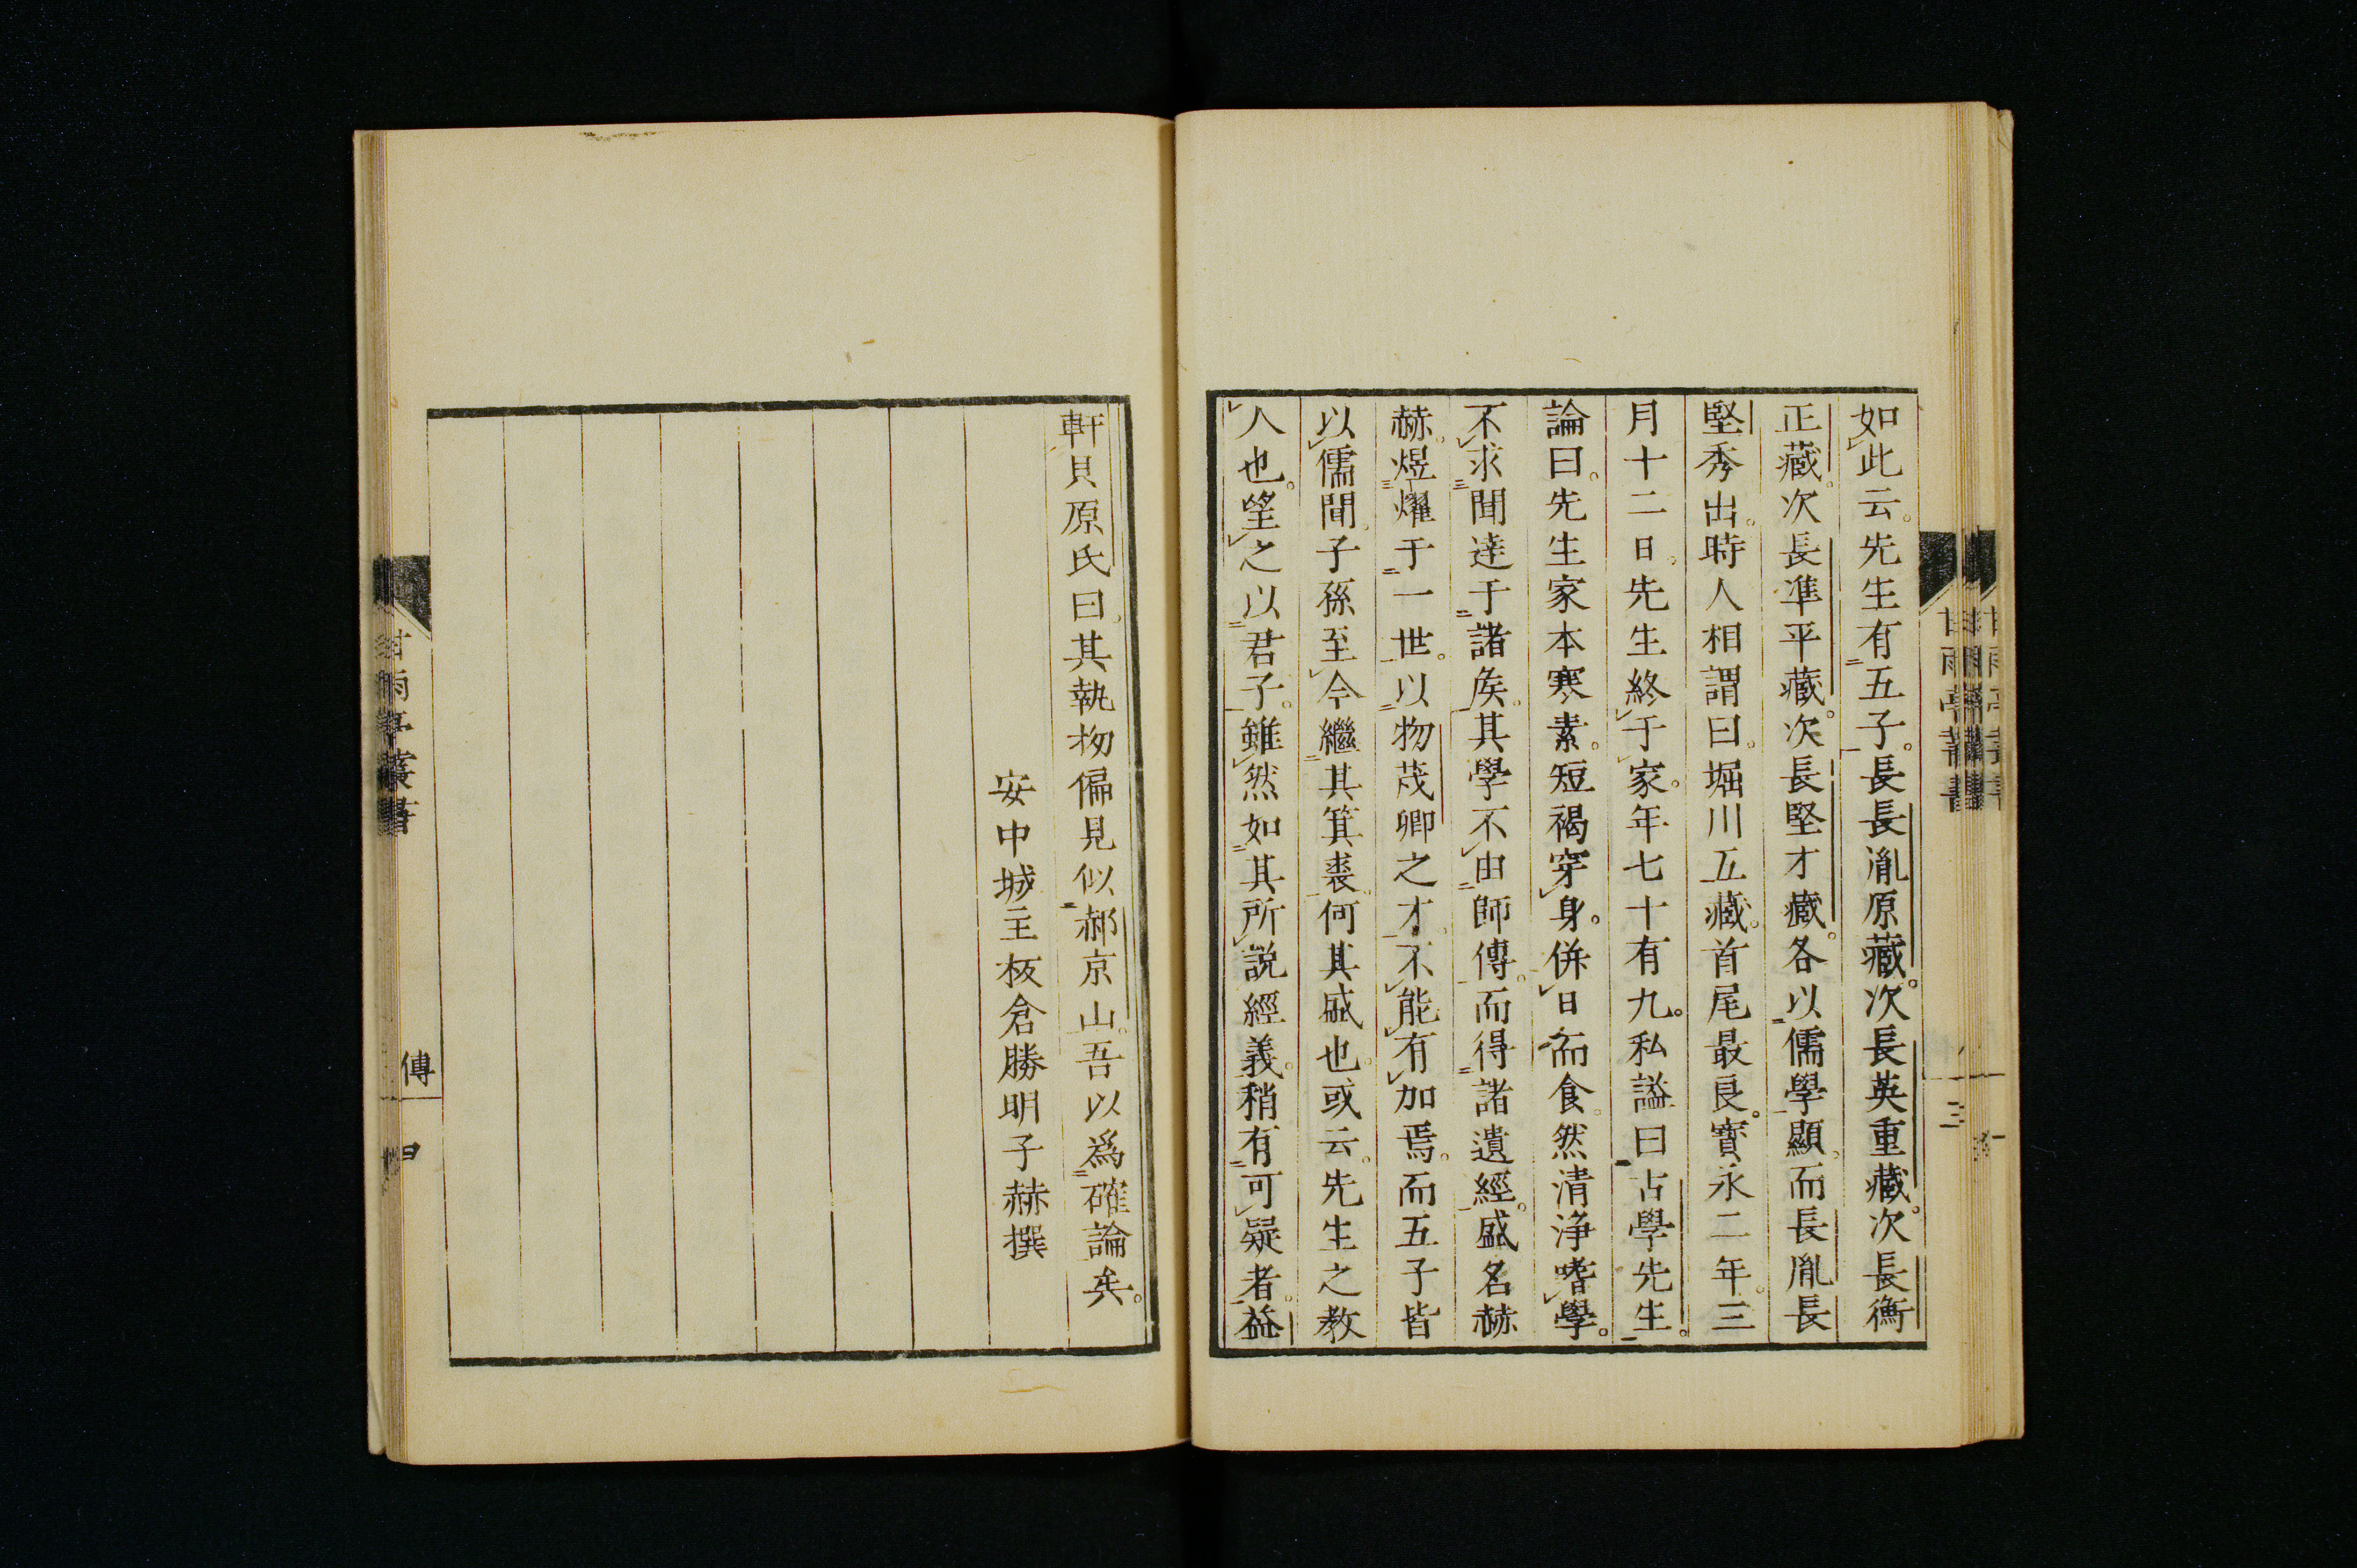 如此云。先生有五子。長長胤原藏。次長英重藏。次長衡
正藏。次長準平藏。次長堅才藏。各以儒學顯。而長胤長
堅秀出。時人相謂曰。堀川五藏。首尾最良。寶永二年。三
月十二日。先生終于家。年七十有九。私謚曰古學先生。
論曰。先生家本寒素。短褐穿身。併日而食。然清浄嗜學。
不求聞達于諸矦。其學不由師傳。而得諸遺經。盛名赫
赫。煜燿于一世。以物茂卿之才。不能有加焉。而五子皆
以儒聞。子孫至今繼其箕裘。何其盛也。或云。先生之教
人也。望之以君子。雖然如其所説經義。稍有可疑者。益
軒貝原氏曰。其執拗偏見似郝京山。吾以爲確論矣。
安中城主板倉勝明子赫撰
甘雨亭叢書
三
甘雨亭叢書
傳
四